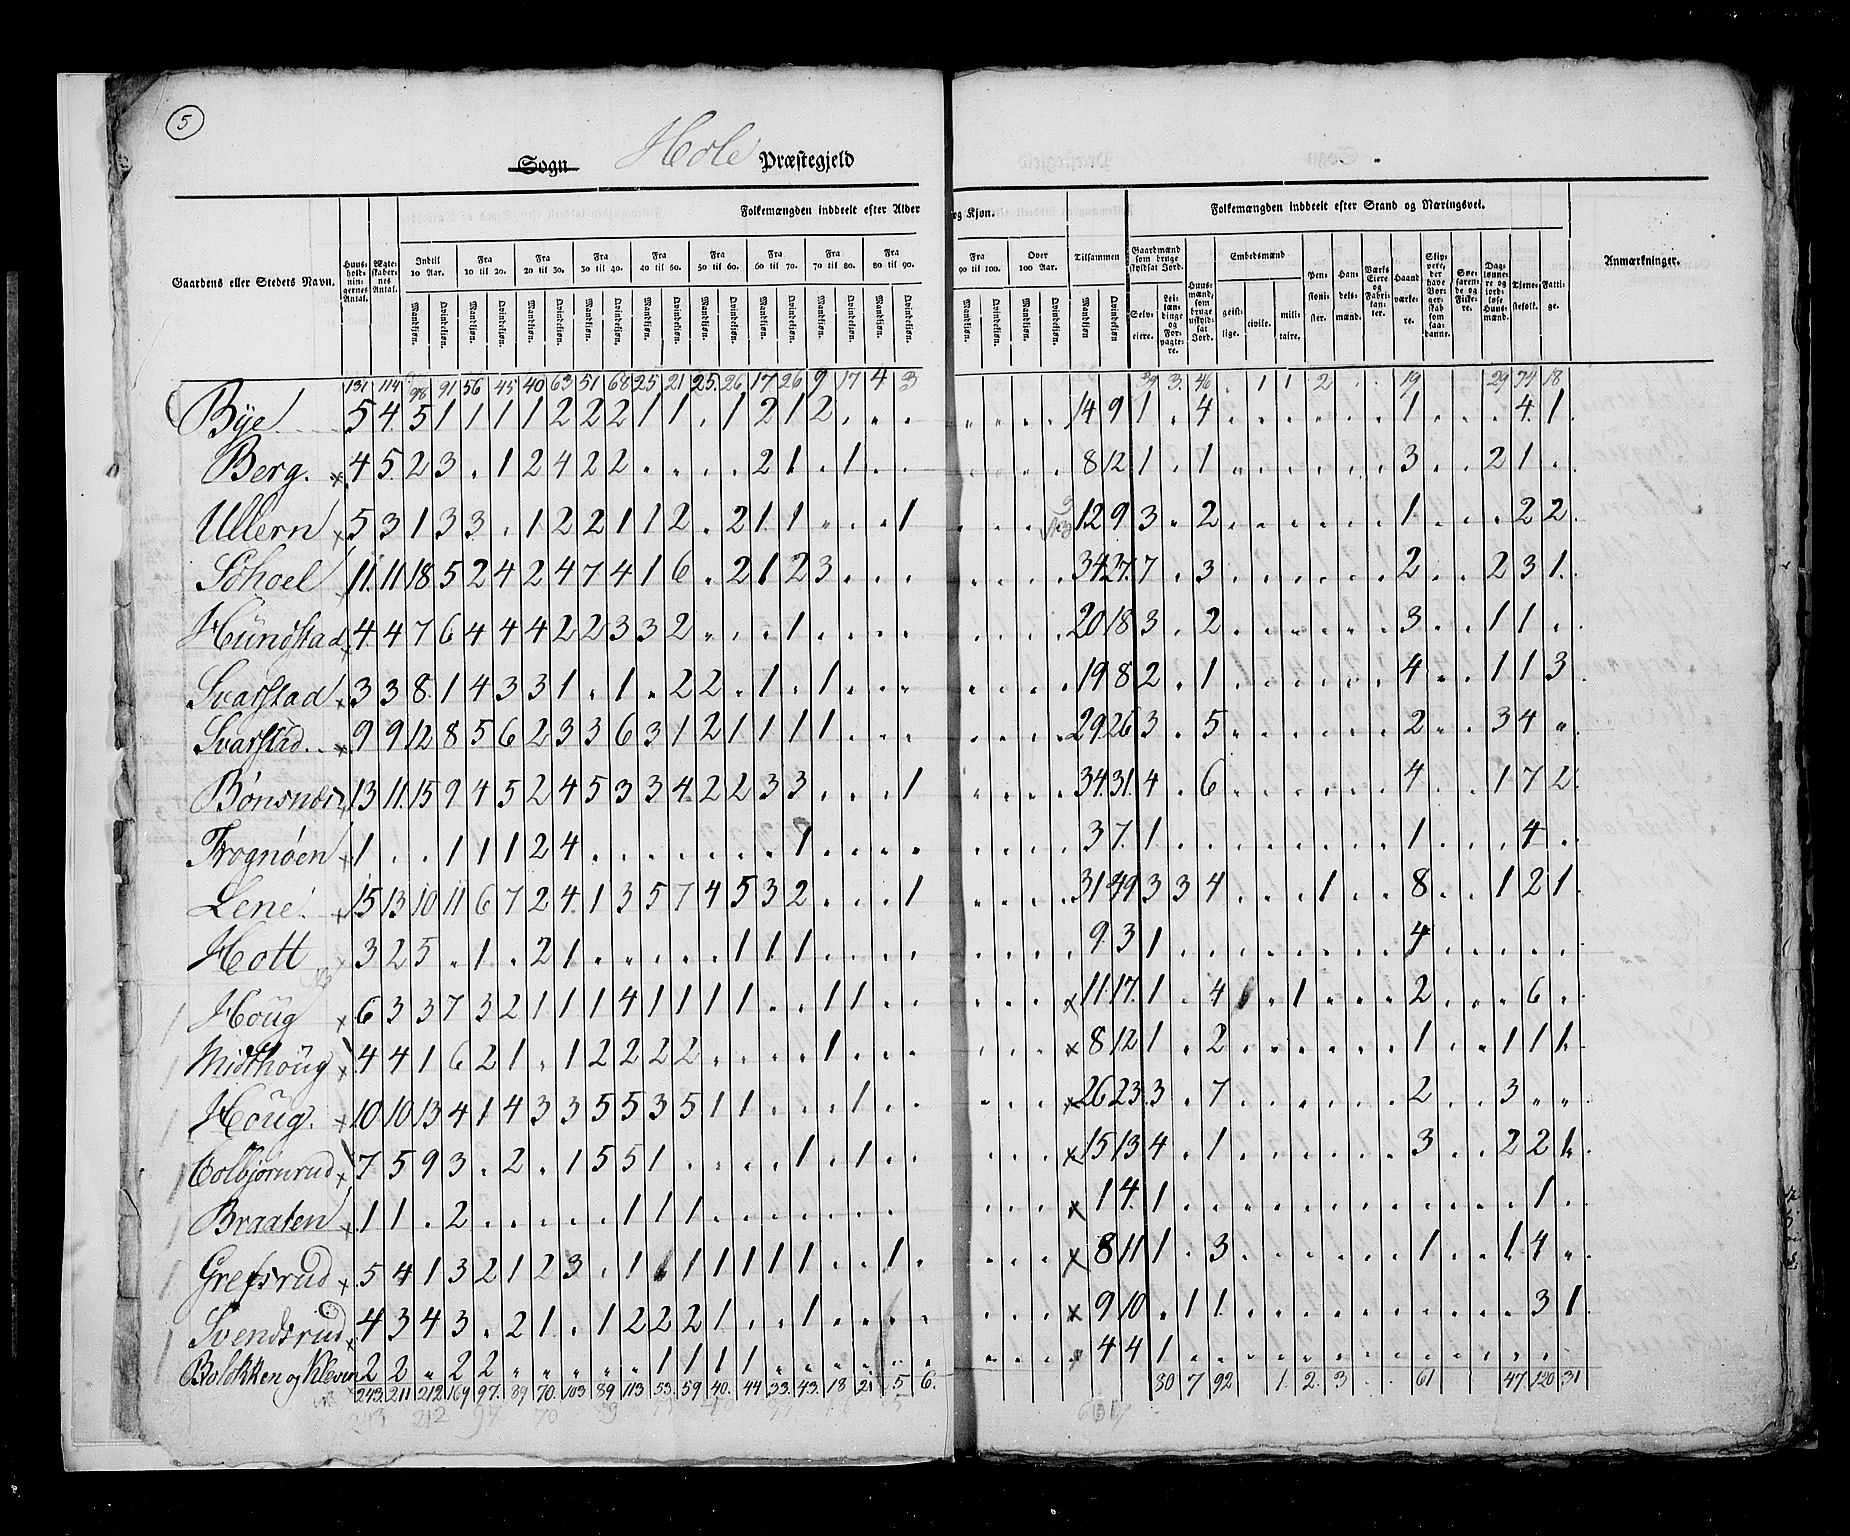 5
Sogn Hole Præstegjeld
Folkemængden inddeelt efter Alder og Kjøn. Folkemængden inddeelt efter Stand og Næringsvei.
Gaardens eller Stedets Navn. Huus-holdnin-gernes Antal. Ægte-skaber-nes Antal. Indtil 10 Aar. Fra 10 til 20. Fra 20 til 30. Fra 30 til 40. Fra 40 til 50. Fra 50 til 60. Fra 60 til 70. Fra 70 til 80. Fra 80 til 90. Fra 90 til 100. Over 100 Aar. Tilsammen Gaardmænd som bruge skyldsat Jord. Huus-mænd, som bruge uskyld-sat Jord. Embedsmænd Pen-sioni-ster. Han-dels-mænd. Værks Eiere og Fabri-kan-ter. Haand-værke-re. Slip-pere, der have Bor-ger-skab som saa-danne. Søe-faren-de og Fiske-re. Dag-lønne-re og jord-løse Huus-mænd. Tjene-stefolk. Fatti-ge. Anmærkninger.
Mandkjøn. Qvindekjøn. Selv-eiere. Lei-læn-dinge og For-pagte-re. geist-lige. civile. mili-taire.
131 114 98 91 56 45 40 63 51 68 25 21 25. 26 17 26 9 17 4 3 39 3. 46 . 1 1 2 . . 19 29 74 18
Bÿe 5 4 5 1 1 1 1 2 2 2 1 1 . 1 2 1 2 . . . . . . . 14 9 1 . 4 . . . . . . 1 . . . 4. 1
Berg. x 4 5 2 3 . 1 2 4 2 2 . . . . 2 1 . 1 . . . . . . 8 12 1 . 1 . . . . . . 3 . . 2 1 .
Ullern x 5 3 1 3 3 . 1 2 2 1 1 2 . 2 1 1 . . . 1 . . . . 12 9 3 . 2 . . . . . . 1 . . . 2 2
Sohoel 11 11 18 5 2 4 2 4 7 4 1 6 . 2 1 2 3 . . . . . . . 34 27. 7 . 3 . . . . . . 2 . . 2 3 1.
Hündstad 4 4 7 6 4 4 4 2 2 3 3 2 . . . 1 . . . . . . . . 20 18 3 . 2 . . . . . . 3 . . 1 1 .
Svarstad x 3 3 8 1 4 3 3 1 . 1 . 2 2 . 1 . 1 . . . . . . . 19 8 2 . 1 . . . . . . 4 . . 1 1 3
Svarstad x 9 9 12 8 5 6 2 3 3 6 3 1 2 1 1 1 1 . . . . . . . 29 26 3 . 5 . . . . . . 2 . . 3 4 .
Bønsnæs 13 11 15 9 4 5 2 4 5 3 3 4 2 2 3 3 . . . 1 . . . . 34 31. 4 . 6 . . . . . . 4 . . 1 7 2
Frognøen x 1 . . 1 1 1 2 4 . . . . . . . 1 . . . . . . . . 3 7. 1 . . . . . . . . 1 . . . 4 .
Lene x 15 13 10 11 6 7 2 4 1 3 5 7 4 5 3 2 . . . 1 . . . . 31 49 3 3 4 . . . 1 . . 8 . . 1 2 1
Hott 3 2 5 . 1 . 2 1 . . . . . 1 1 1 . . . . . . . . 9 3 1 . . . . . . . . 4 . . . . .
Höug x 6 3 3 7 3 2 1 1 1 4 1 1 1 1 . . 1 1 . . . . . . x 11 17. 1 . 4 . . 1 . . . 2 . . . 6 .
Midthöug x 4 4 1 6 2 1 . 1 2 2 2 2 . . . . 1 . . . . . . . x 8 12 1 . 2 . . . . . . 1 . . 1 1 1
Höug. x 10 10 13 4 1 4 3 3 5 5 3 5 1 1 . . . 1 . . . . . . x 26 23 3 . 7 . . . . . . 2 . . 3 . .
Colbjørnrud x 7 5 9 3 . 2 . 1 5 5 1 . . . . 1 . 1 . . . . . . x 15 13 4 . 1 . . . . . . 3 . . 2 2 1
Braaten x 1 1 . 2 . . . . . 1 1 1 . . . . . . . . . . . . x 1 4. 1 . . . . . . . . . . . . 1 .
Grefsrud x 5 4 1 3 2 1 2 3 . 1 1 1 1 1 1 . . 1 . . . . x 8 11 1 . 3 . . . . . . 1 . . 1 4 .
Svendsrud x 4 3 4 3 . 2 1 . 1 2 2 2 1 . . 1 . . . . . . . . x 9 10 . 1 1 . . . . . . . . . . 3 1
Bolökken og Kleven 2 2 . 2 2 . . . . . 1 1 1 1 . . . . . . . . . . 4 4 1 . . . . . . . . . . . . . .
243. 211 212 164 97. 89 70. 103 89 113 53. 59 40. 44 33. 43. 18 21 5 6. 30 7 92 1. 2. 3 . . 61 47 120 31
243 212 97 70